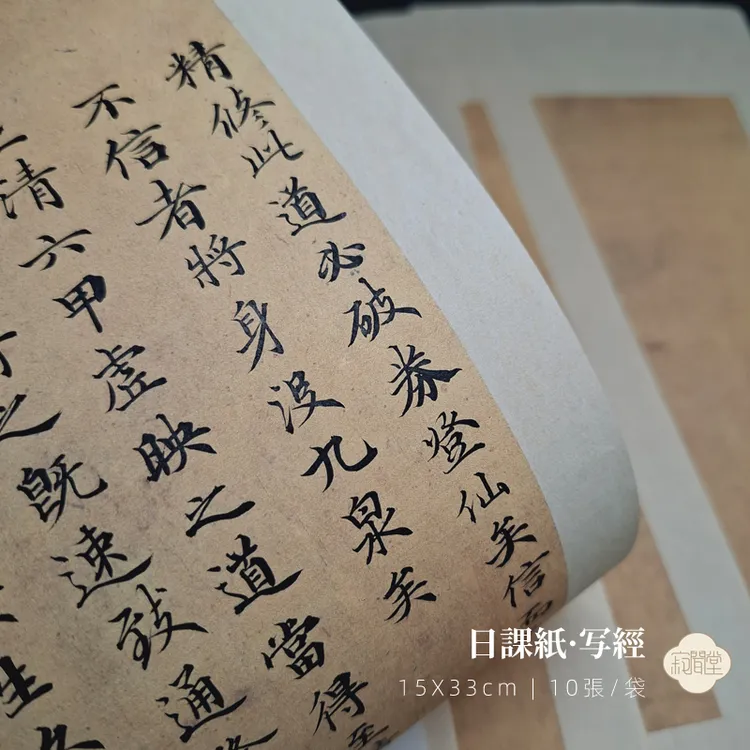 精脩此道必破券登仙矣信而
不信者將身没九泉矣
上清六甲虛映之道當得至
行之既速致通
生
日課紙·写經
15X33cm | 10張/袋
寂聞堂